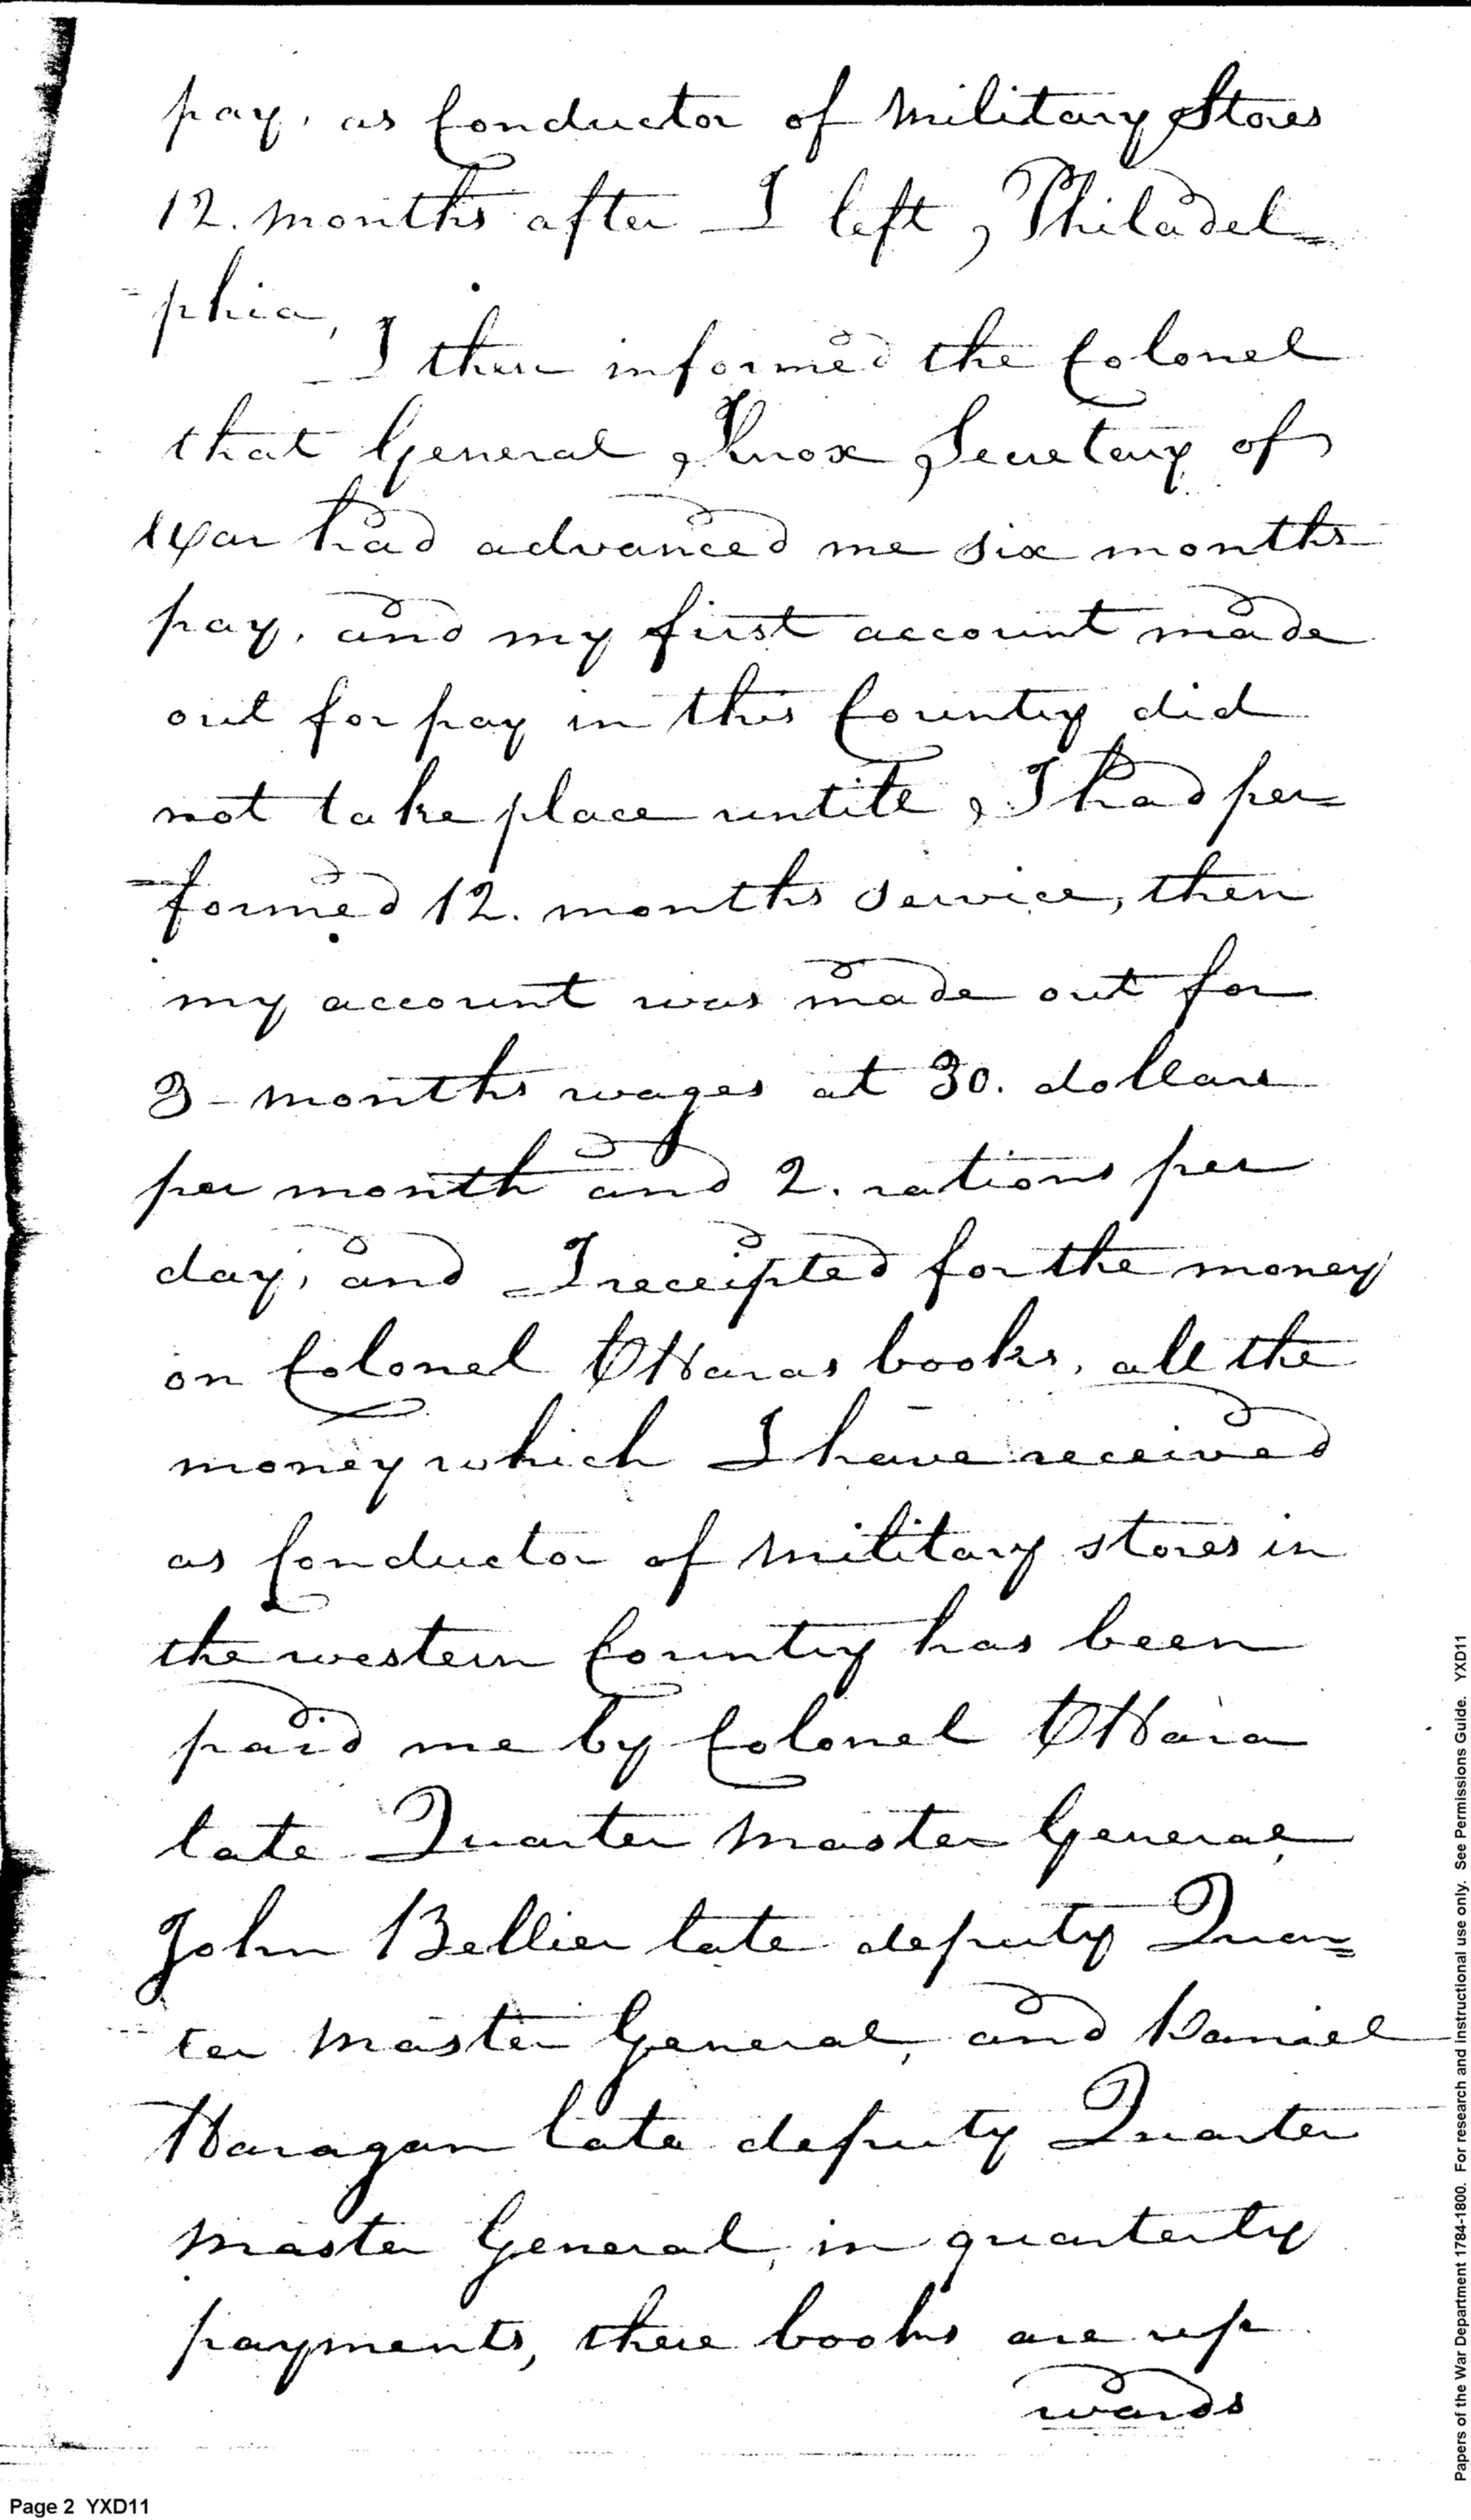 pay, as Conductor of Military Stores
12. months after I left Philadel=
=phia,
I then informed the Colonel
that General Knox Secretary of
War had advanced me six months
pay, and my first account made
out for pay in this Country did
not take place untile I had per=
=formed 12. months service, then
my account was made out for
3 months wages at 30. dollars
per month and 2. rations per
day, and I receipted for the money
on Colonel OHaras books, all the
money which I have received
as Conductor of Military stores in
the western Country has been
paid me by Colonel OHara
late Quarter Master General
John Bellier late deputy Quar=
=ter Master General, and Daniel
Haragan late deputy Quarter
Master General, in quarterly
payments, there books are up
wards
Page 2 YXD11
Papers of the War Department 1784-1800. For research and instructional use only. See Permissions Guide. YXD11